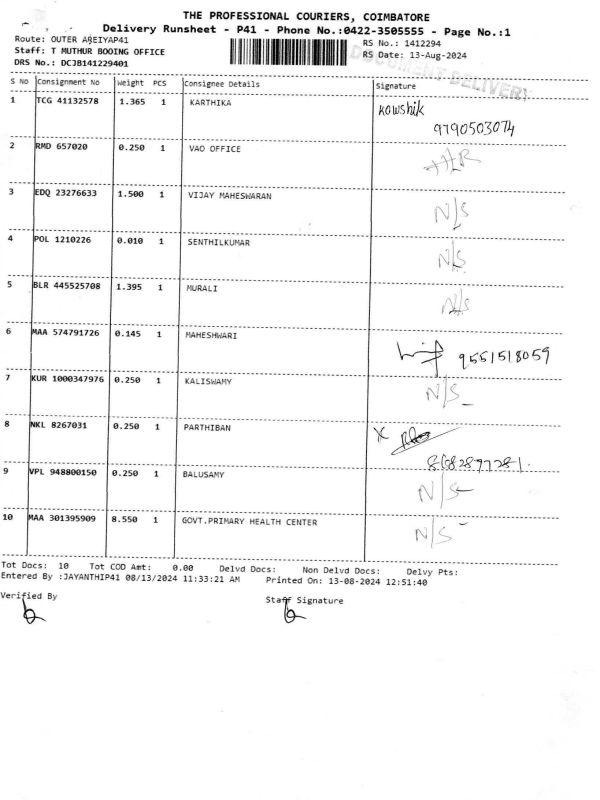 THE PROFESSIONAL COURIERS, COIMBATORE
Delivery Runsheet - P41 - Phone No.:0422-3505555 - Page No.:1
Route: OUTER AREIYAP41 RS No.: 1412294
Staff: T MUTHUR BOOING OFFICE RS Date: 13-Aug-2024
DRS No.: DCJB141229401
DOCUMENT DELIVERY
S No Consignment No Weight PCS Consignee Details Signature
1 TCG 41132578 1.365 1 KARTHIKA Kowshik
9790503074
2 RMD 657020 0.250 1 VAO OFFICE
3 EDQ 23276633 1.500 1 VIJAY MAHESWARAN N/S
4 POL 1210226 0.010 1 SENTHILKUMAR N/S
5 BLR 445525708 1.395 1 MURALI N/S
6 MAA 574791726 0.145 1 MAHESHWARI 9551518059
7 KUR 1000347976 0.250 1 KALISWAMY N/S
8 NKL 8267031 0.250 1 PARTHIBAN X
9 VPL 948800150 0.250 1 BALUSAMY N/S
10 MAA 301395909 8.550 1 GOVT.PRIMARY HEALTH CENTER N/S
Tot Docs: 10 Tot COD Amt: 0.00 Delvd Docs: Non Delvd Docs: Delvy Pts:
Entered By :JAYANTHIP41 08/13/2024 11:33:21 AM Printed On: 13-08-2024 12:51:40
Verified By Staff Signature